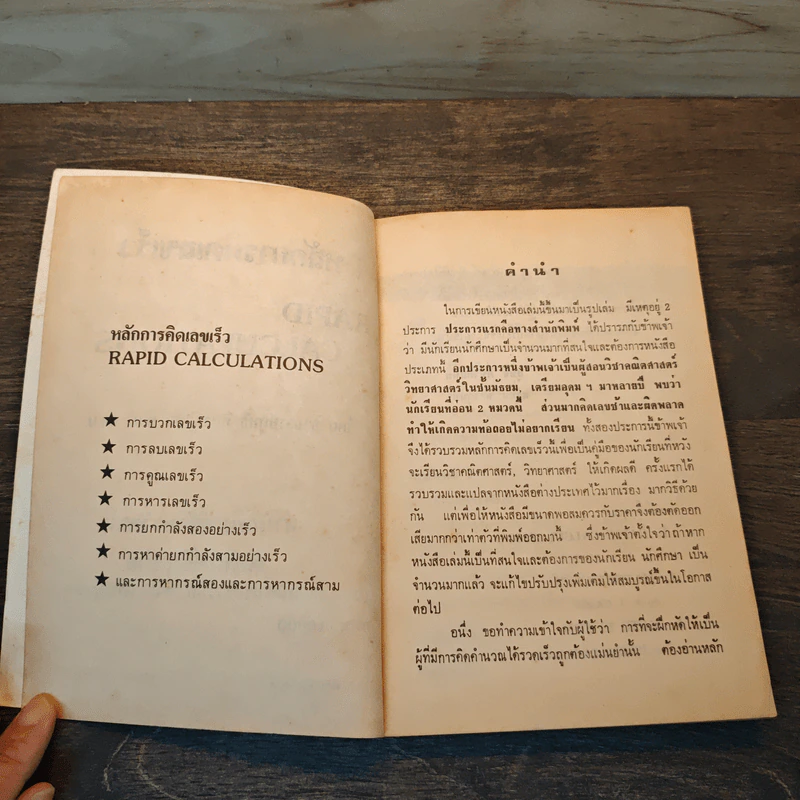 หลักการคิดเลขเร็ว
RAPID CALCULATIONS
★ การบวกเลขเร็ว
★ การลบเลขเร็ว
★ การคูณเลขเร็ว
★ การหารเลขเร็ว
★ การยกกำลังสองอย่างเร็ว
★ การหาค่ายกกำลังสามอย่างเร็ว
★ และการหากรณ์สองและการหากรณ์สาม
คำนำ
ในการเขียนหนังสือเล่มนี้ขึ้นมาเป็นรูปเล่ม มีเหตุอยู่ 2
ประการ ประการแรกคือทางสำนักพิมพ์ ได้ปรารภกับข้าพเจ้า
ว่า มีนักเรียนนักศึกษาเป็นจำนวนมากที่สนใจและต้องการหนังสือ
ประเภทนี้ อีกประการหนึ่งข้าพเจ้าเป็นผู้สอนวิชาคณิตศาสตร์
วิทยาศาสตร์ในชั้นมัธยม, เตรียมอุดม ฯ มาหลายปี พบว่า
นักเรียนที่อ่อน 2 หมวดนี้ ส่วนมากคิดเลขช้าและผิดพลาด
ทำให้เกิดความท้อถอยไม่อยากเรียน ทั้งสองประการนี้ข้าพเจ้า
จึงได้รวบรวมหลักการคิดเลขเร็วนี้เพื่อเป็นคู่มือของนักเรียนที่หวัง
จะเรียนวิชาคณิตศาสตร์, วิทยาศาสตร์ ให้เกิดผลดี ครั้งแรกได้
รวบรวมและแปลจากหนังสือต่างประเทศไว้มากเรื่อง มากวิธีด้วย
กัน แต่เพื่อให้หนังสือมีขนาดพอสมควรกับราคาจึงต้องตัดออก
เสียมากกว่าเท่าตัวที่พิมพ์ออกมานี้ ซึ่งข้าพเจ้าตั้งใจว่าถ้าหาก
หนังสือเล่มนี้เป็นที่สนใจและต้องการของนักเรียน นักศึกษา เป็น
จำนวนมากแล้ว จะแก้ไขปรับปรุงเพิ่มเติมให้สมบูรณ์ขึ้นในโอกาส
ต่อไป
อนึ่ง ขอทำความเข้าใจกับผู้ใช้ว่า การที่จะฝึกหัดให้เป็น
ผู้ที่มีการคิดคำนวณได้รวดเร็วถูกต้องแม่นยำนั้น ต้องอ่านหลัก